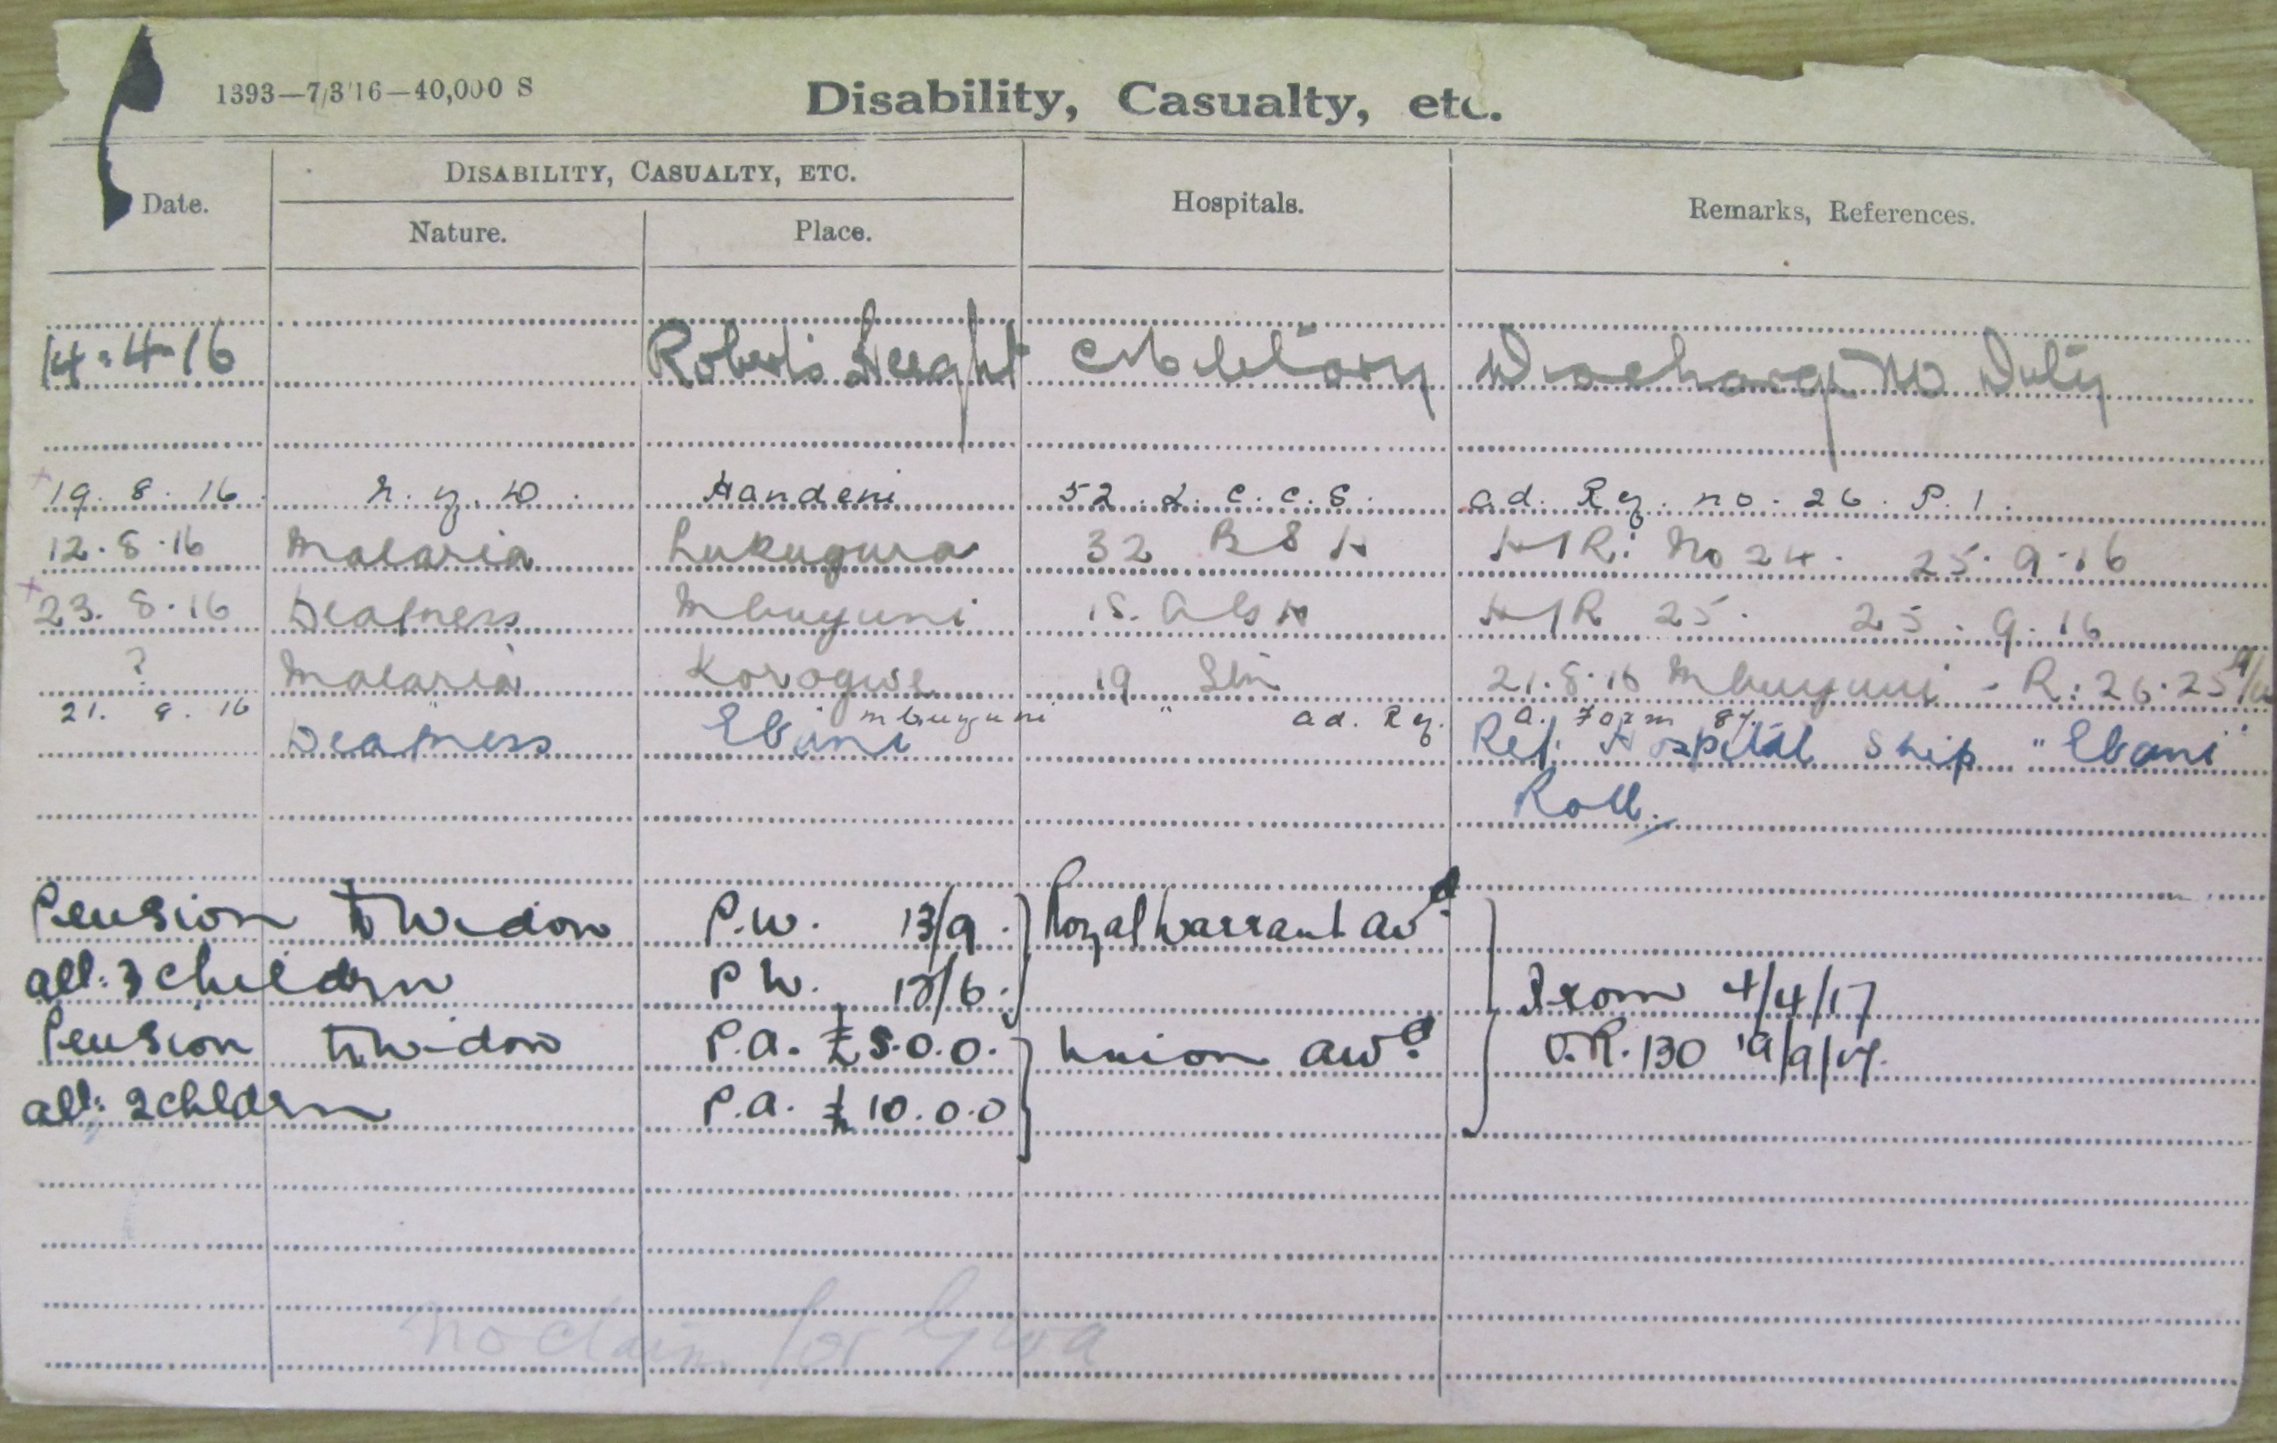 1393—7/3/16—40,000 S
Disability, Casualty, etc.
Date.
DISABILITY, CASUALTY, ETC.
Nature.
Place.
Hospitals.
Remarks, References.
14.4.16 Roberts Height Military Discharged to Duty
19.8.16. n.y.D. Handeni 52.L.C.C.S. ad. Rg. no. 26. P.1.
12.8.16 Malaria Lukugura 32 B S H H/R: No 24. 25.9.16
23.8.16 Deafness Mbuyuni 15. H H/R 25. 25.9.16
? Malaria Korogwe 19 " Stn 21.8.16 Mbuyuni - R: 26.25
21.9.16 mbuyuni " ad. Rg. a. Form 87.
Deafness Ebani Ref. Hospital Ship "Ebani"
Roll.
Pension to Widow P.W. 13/9. Royal Warrant awd.
all: 3 children P.W.
Pension to Widow P.A. £5.0.0. Union awd. From 4/4/17
all: 2 childrn P.A. £10.0.0 O.R. 130 19/9/17.
no claim for Gwa